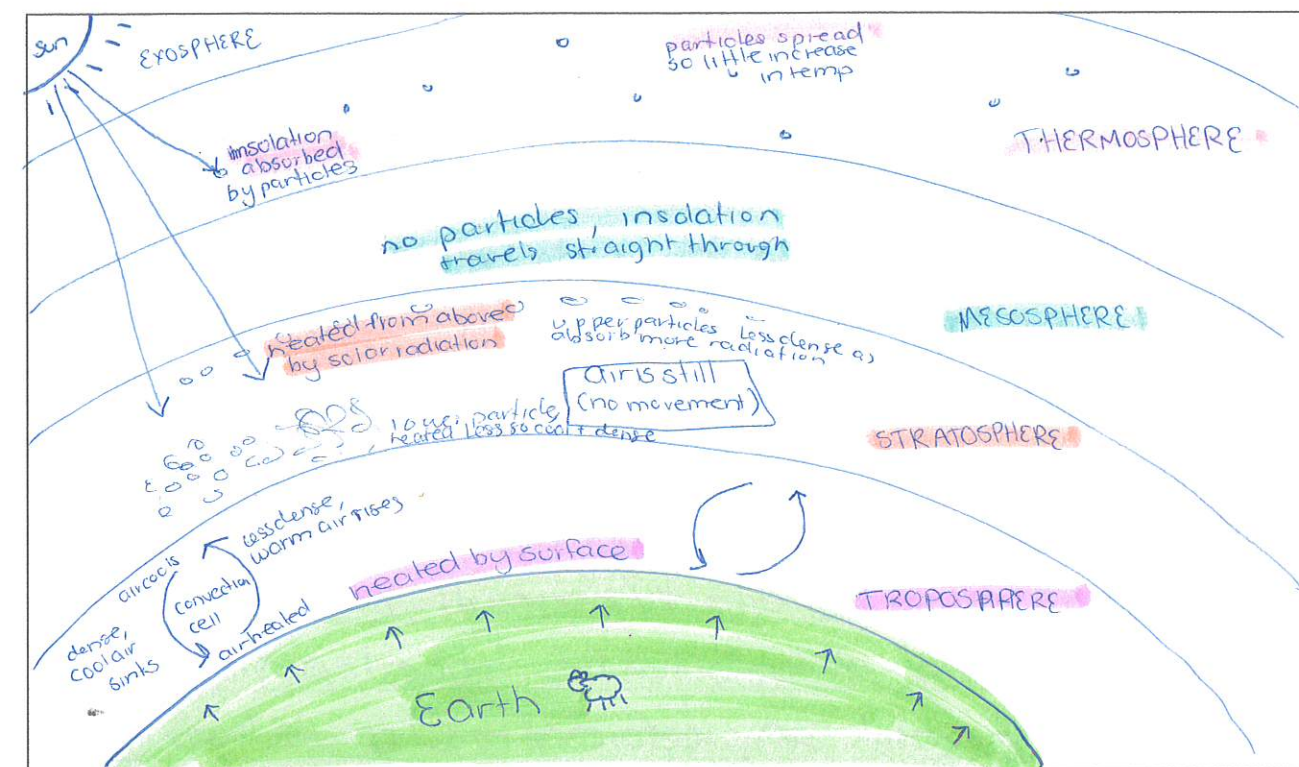 sun
EXOSPHERE
particles spread
so little increase
in temp
THERMOSPHERE
insolation
absorbed
by particles
no particles, insolation
travels straight through
MESOSPHERE
heated from above
by solar radiation
upper particles less dense as
absorb more radiation
air is still
(no movement)
lower particle
heated less so cool + dense
STRATOSPHERE
less dense,
warm air rises
air cools
convection
cell
air heated
dense,
cool air
sinks
heated by surface
TROPOSPHERE
Earth